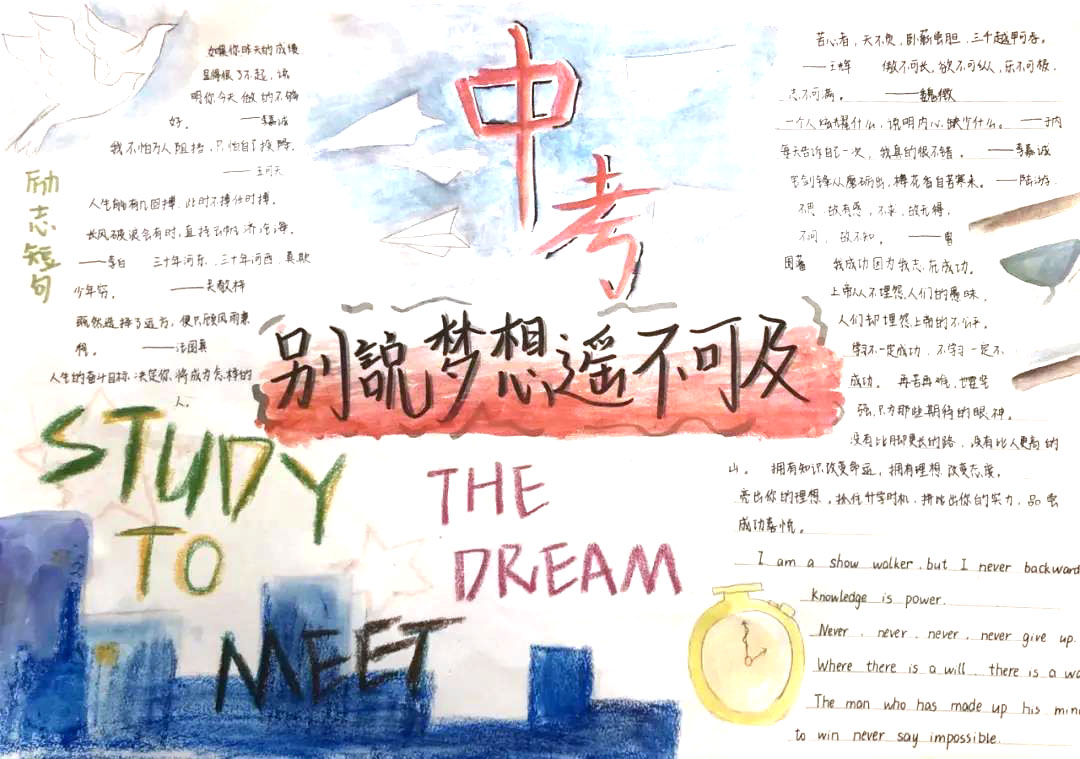 中考
别說梦想遥不可及
励志短句
如果你昨天的成绩
显得很了不起,说
明你今天做的不够
好。 ——李嘉诚
我不怕为人阻挡,只怕自己投降。
人生能有几回搏,此时不搏何时搏。
长风破浪会有时,直挂云帆济沧海。
——李白 三十年河东,三十年河西,莫欺
少年穷。 ——吴敬梓
既然选择了远方,便只顾风雨兼
程。 ——汪国真
人生的奋斗目标,决定你将成为怎样的
人。
STUDY
TO
MEET
THE
DREAM
苦心者,天不负,卧薪尝胆,三千越甲吞。
傲不可长,欲不可纵,乐不可极,
志不可满。 ——魏徵
一个人炫耀什么,说明内心缺少什么。
每天告诉自己一次,我真的很不错。 ——李嘉诚
宝剑锋从磨砺出,梅花香自苦寒来。 ——陆游
不思,故有惑,不求,故无得,
不问,故不知。
我成功因为我志在成功。
上帝从不埋怨人们的愚昧,
人们却埋怨上帝的不公平。
学习不一定成功,不学习一定不
成功。 再苦再难,也要坚
强,只为那些期待的眼神。
没有比脚更长的路,没有比人更高的
山。 拥有知识改变命运,拥有理想改变态度。
亮出你的理想,抓住升学时机,拼出你的实力,品尝
成功喜悦。
I am a show walker, but I never backward
Knowledge is power.
Never, never, never, never give up.
Where there is a will, there is a wa
The man who has made up his min
to win never say impossible.